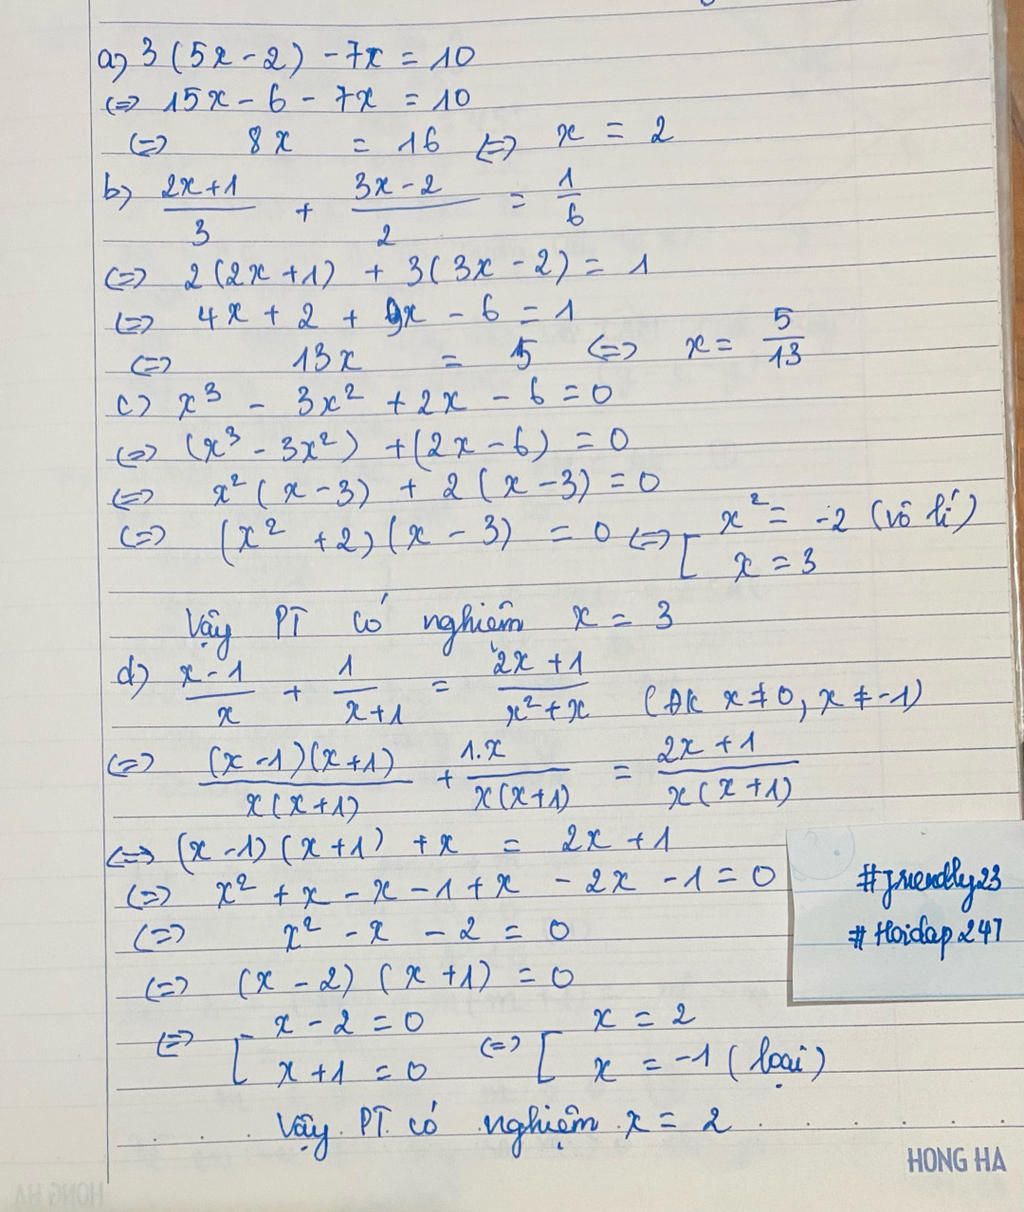 a) 3(5x - 2) - 7x = 10
<=> 15x - 6 - 7x = 10
<=> 8x = 16 <=> x = 2
b) (2x+1)/3 + (3x-2)/2 = 1/6
<=> 2(2x+1) + 3(3x - 2) = 1
<=> 4x + 2 + 9x - 6 = 1
<=> 13x = 5 <=> x = 5/13
c) x³ - 3x² + 2x - 6 = 0
<=> (x³ - 3x²) + (2x - 6) = 0
<=> x²(x-3) + 2(x-3) = 0
<=> (x² + 2)(x - 3) = 0 <=> [ x² = -2 (vô lí)
x = 3
Vậy PT có nghiệm x = 3
d) (x-1)/x + 1/(x+1) = (2x+1)/(x²+x) (ĐK x ≠ 0, x ≠ -1)
<=> (x-1)(x+1)/x(x+1) + 1.x/x(x+1) = (2x+1)/x(x+1)
<=> (x-1)(x+1) + x = 2x + 1
<=> x² + x - x - 1 + x - 2x - 1 = 0
<=> x² - x - 2 = 0
<=> (x - 2)(x + 1) = 0
<=> [ x - 2 = 0 <=> [ x = 2
x + 1 = 0 x = -1 (loại)
Vậy PT có nghiệm x = 2
#friendly23
#Hoidap247
HONG HA